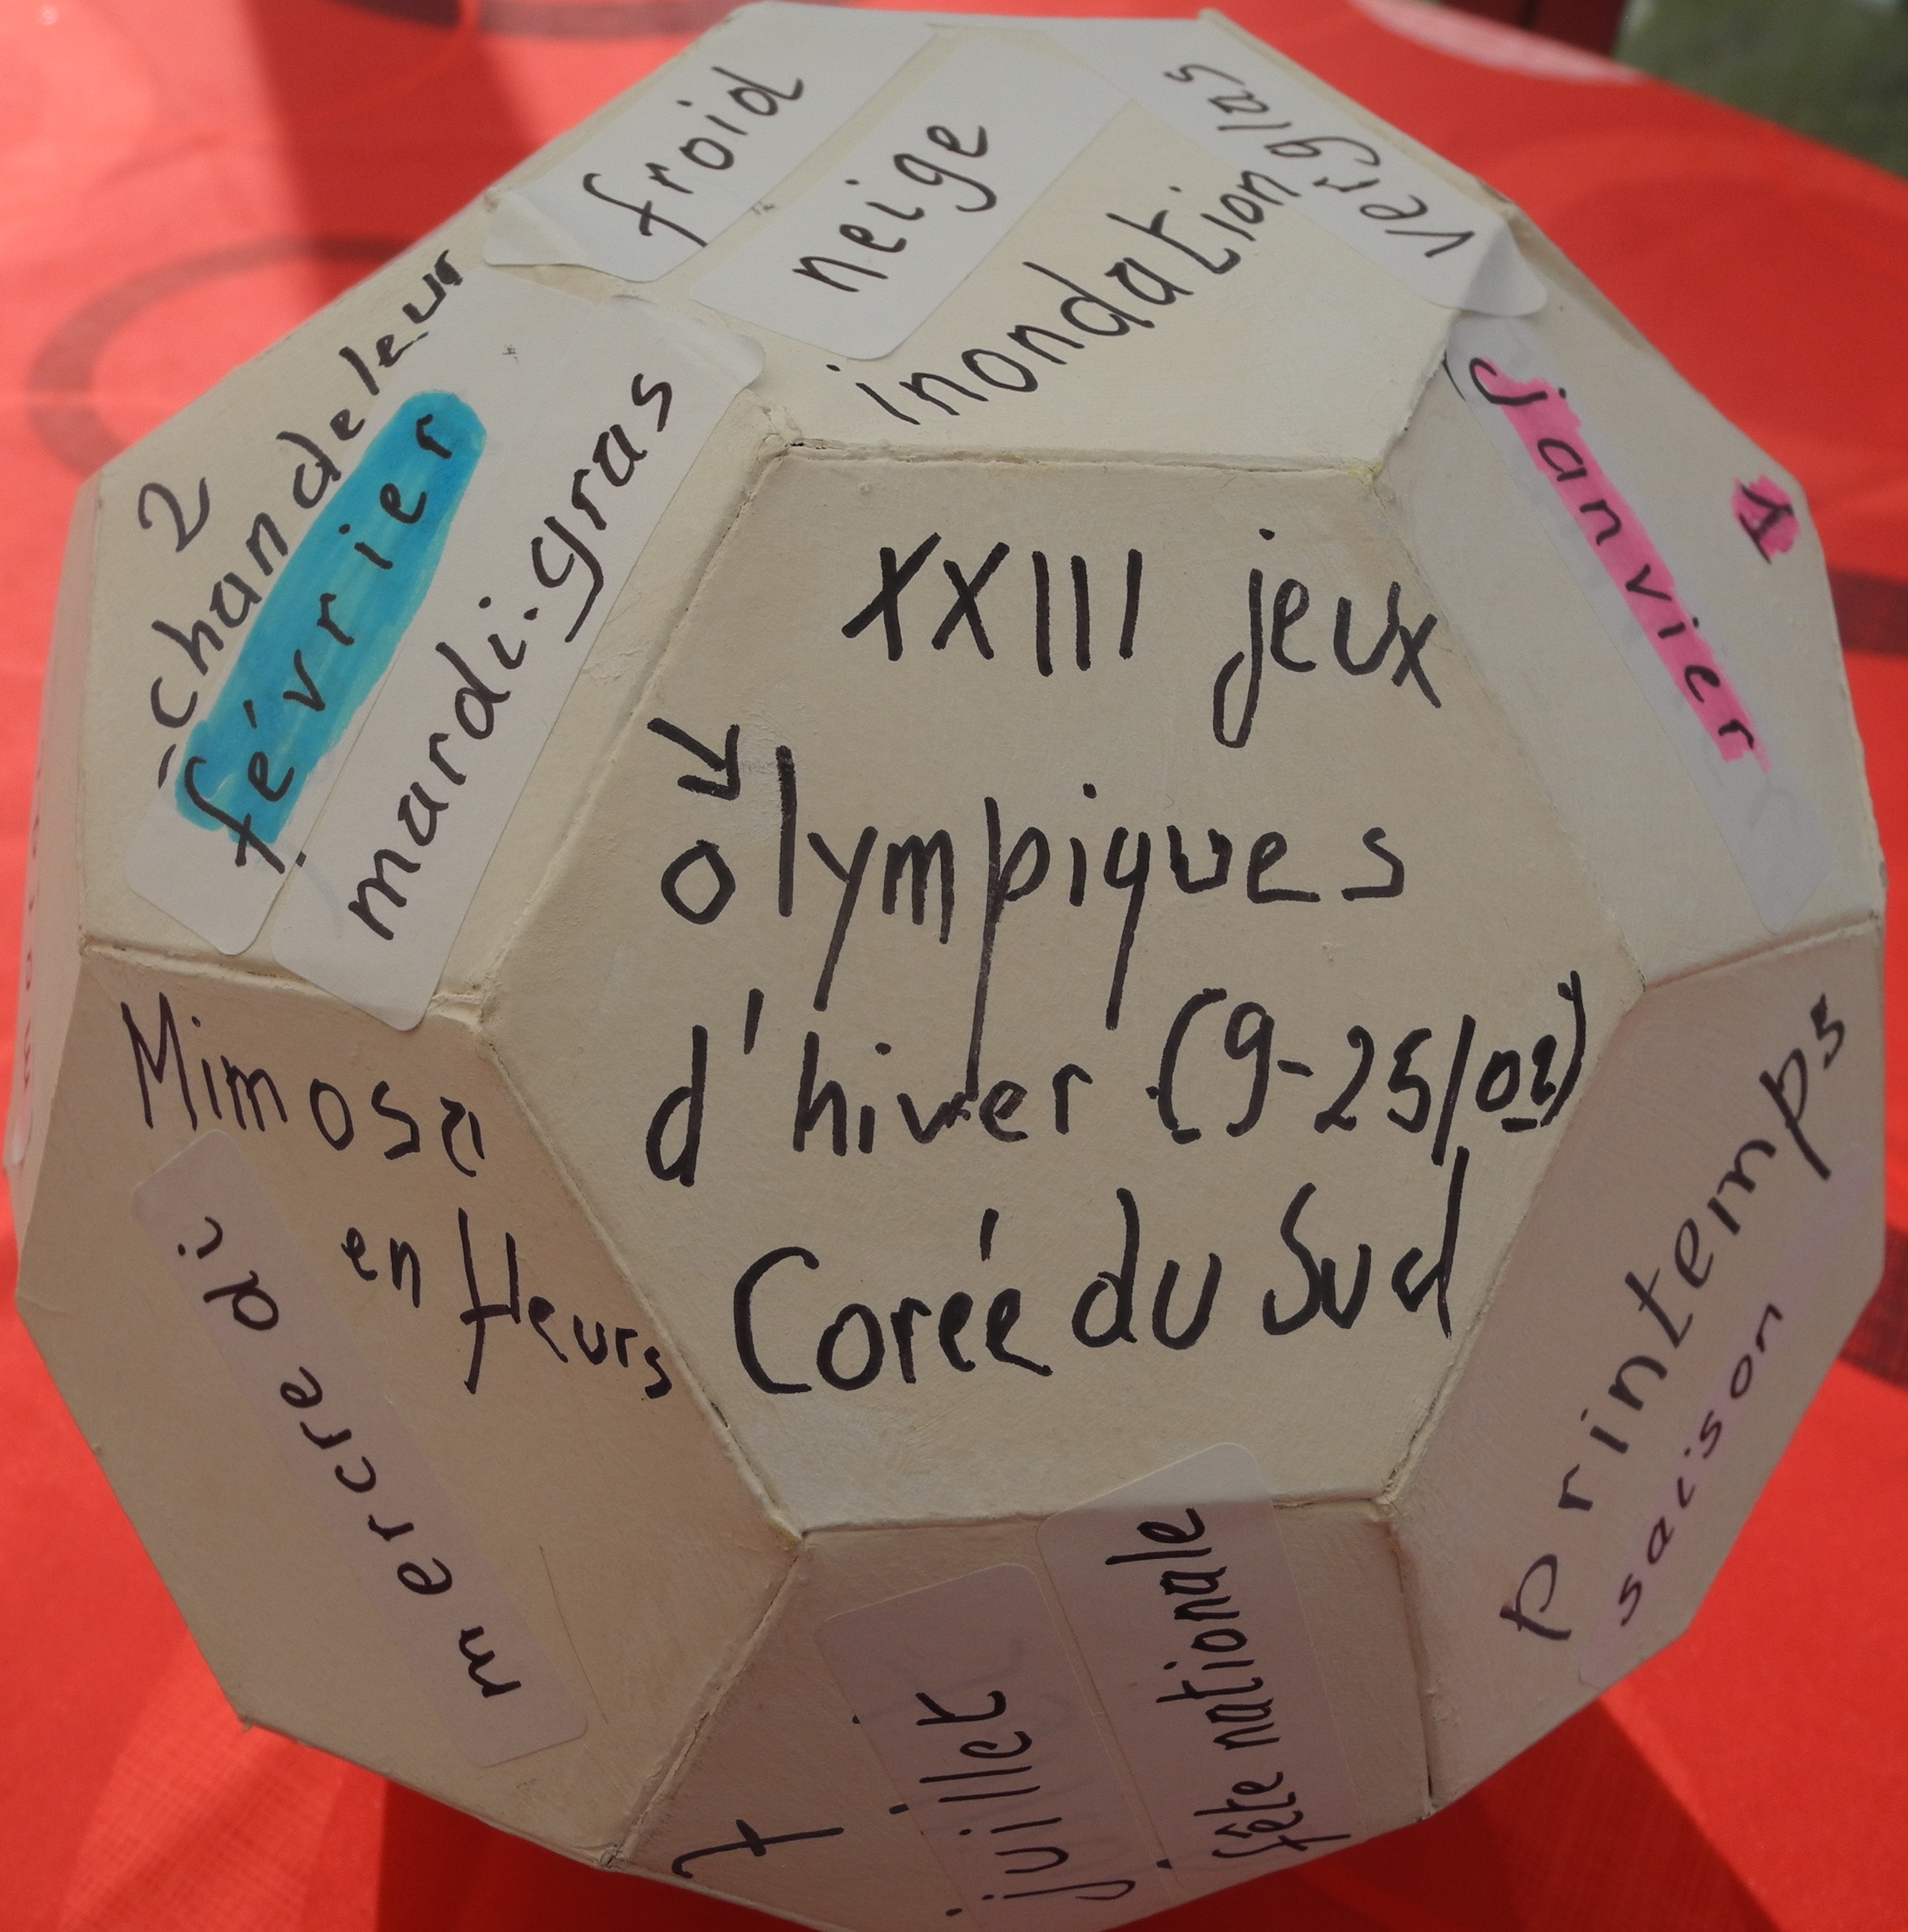 froid
neige
inondation
verglas
2
chandeleur
février
mardi-gras
janvier
1
XXIII jeux
olympiques
d'hiver (9-25/02)
Corée du Sud
Mimosa
en fleurs
mercredi
Printemps
saison
7
juillet
fête nationale